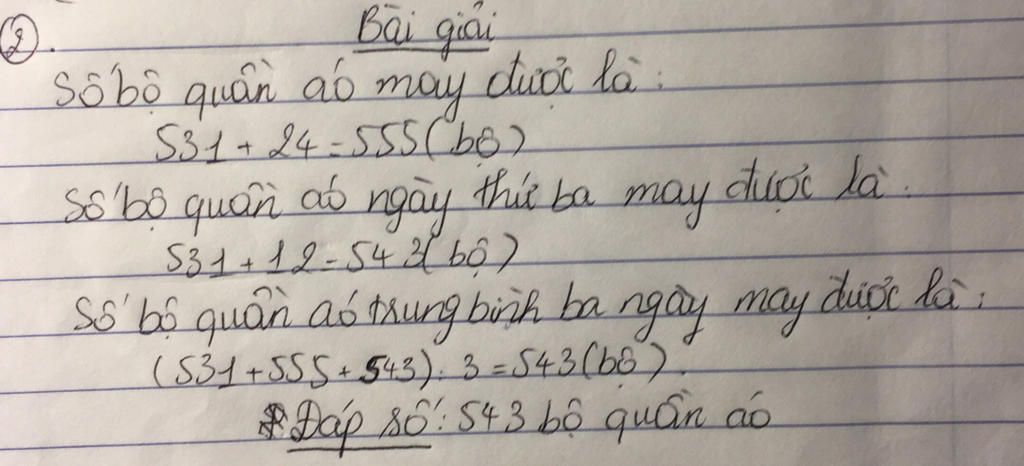 2.
Bài giải
Số bộ quần áo may được là:
531 + 24 = 555 (bộ)
Số bộ quần áo ngày thứ ba may được là:
531 + 12 = 543 (bộ)
Số bộ quần áo trung bình ba ngày may được là:
(531 + 555 + 543) : 3 = 543 (bộ).
Đáp số: 543 bộ quần áo